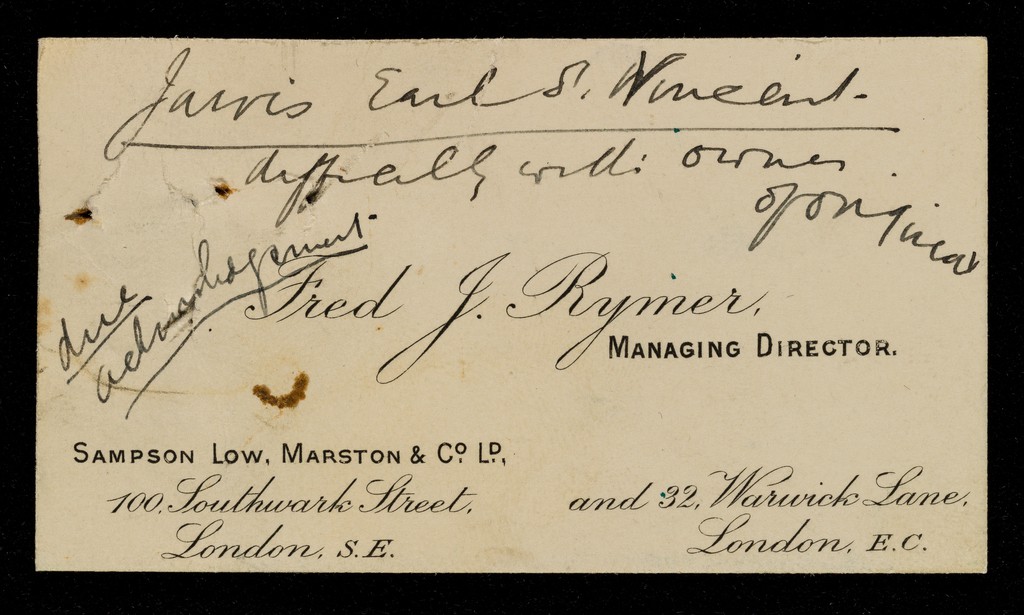 Jarvis Earl St. Vincent
difficulty with owner
of original
due
acknowledgement
Fred J. Rymer,
MANAGING DIRECTOR.
SAMPSON LOW, MARSTON & Co. LD.,
100, Southwark Street,
London, S.E.
and 32, Warwick Lane,
London, E.C.